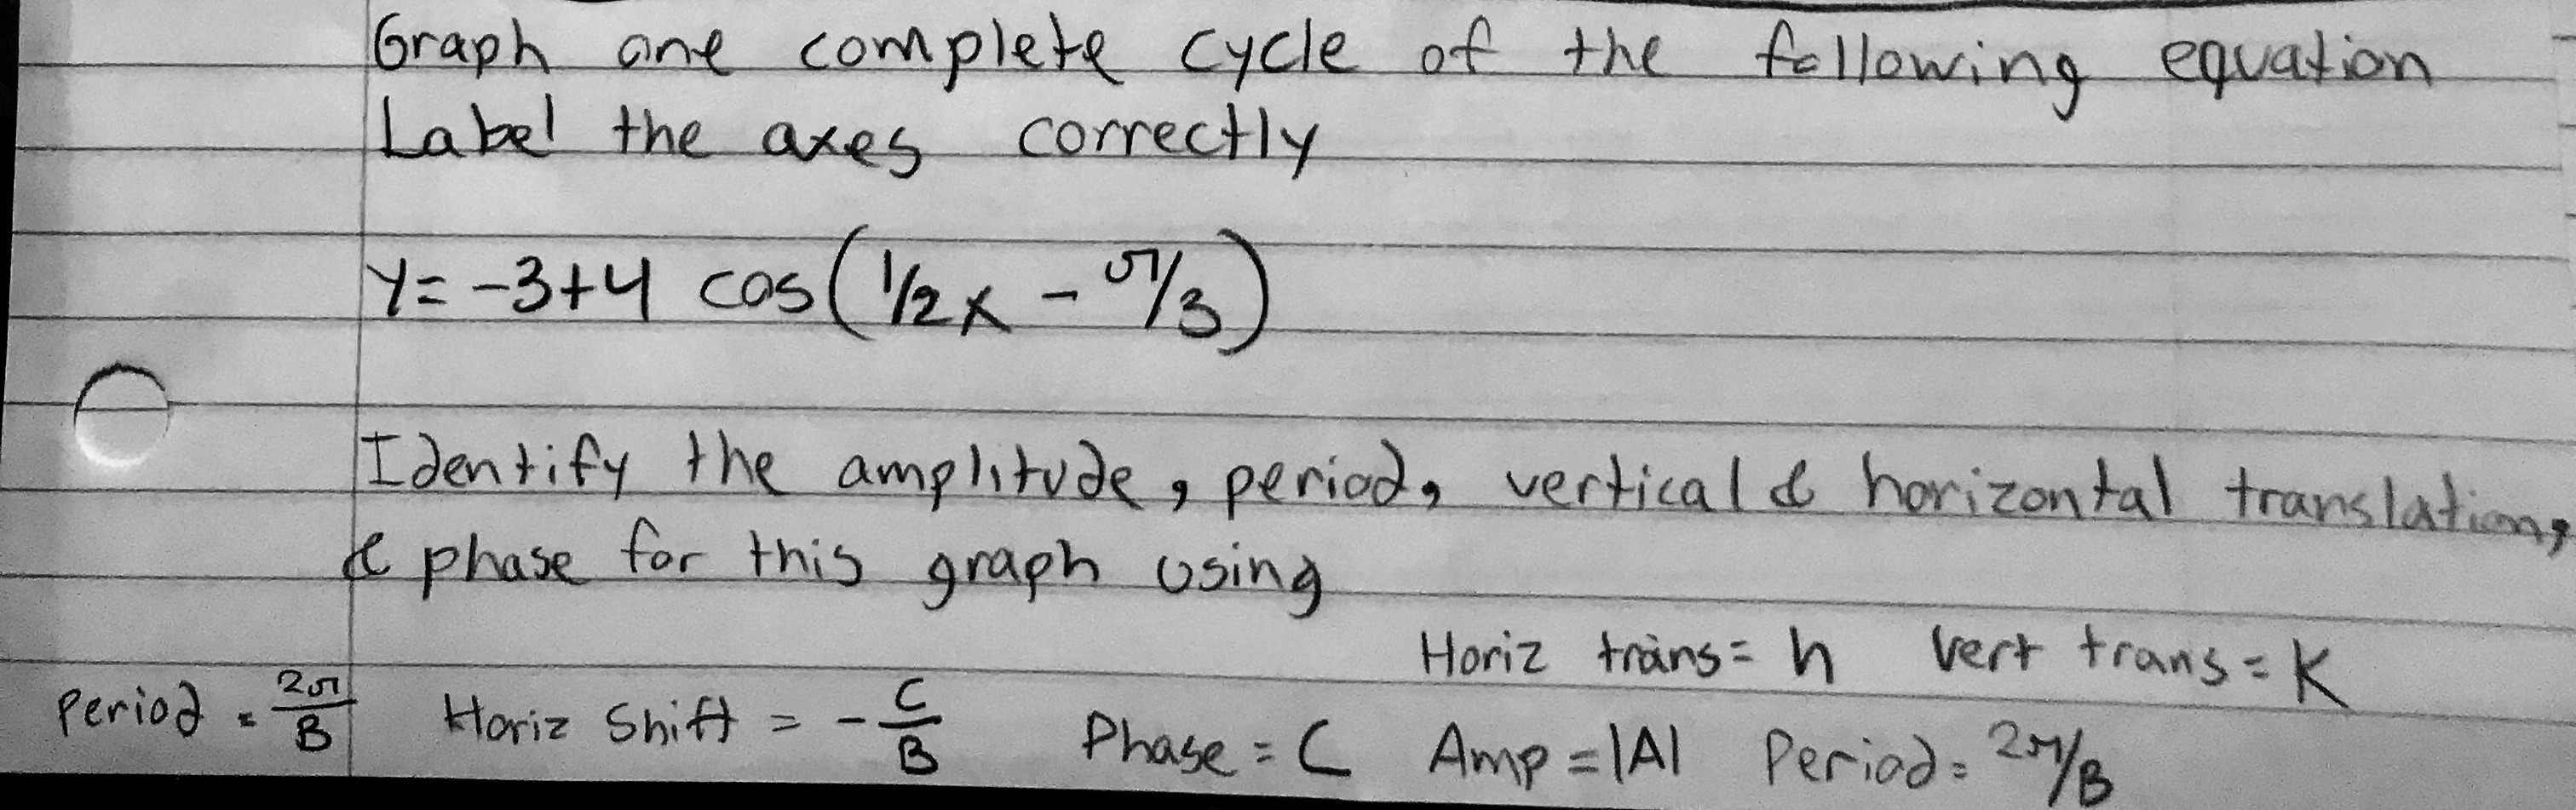 Graph one complete cycle of the following equation
Label the axes correctly
y = -3+4 cos(1/2x - π/3)
Identify the amplitude, period, vertical & horizontal translation,
& phase for this graph using
Horiz trans = h Vert trans = K
Period = 2π/B Horiz Shift = - C/B Phase = C Amp = |A| Period = 2π/B